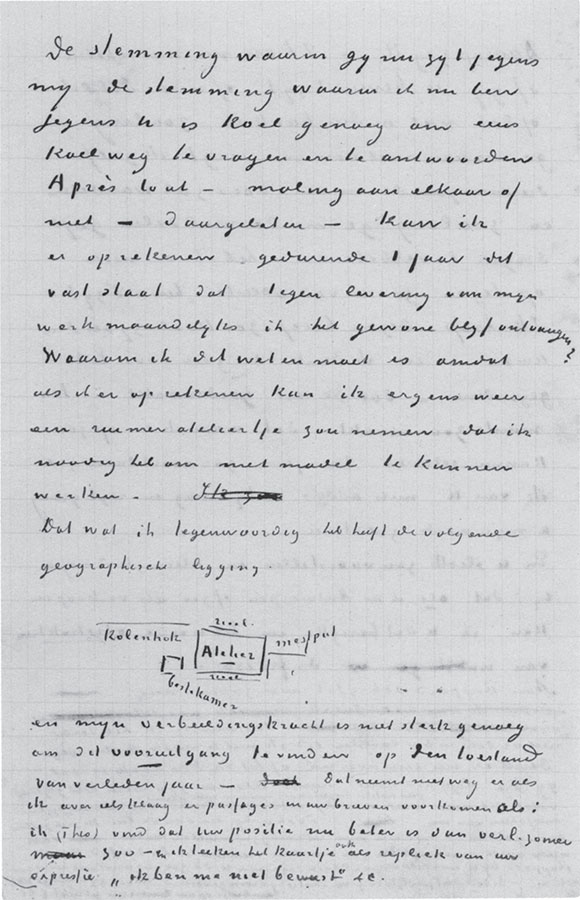 De stemming waarin gij nu zijt jegens
mij de stemming waarin ik nu ben
jegens U is koel genoeg om eens
koelweg te vragen en te antwoorden
Après tout – moling aan elkaar of
niet – daargelaten – kan ik
er op rekenen gedurende 1 jaar dit
vast staat dat tegen levering van mijn
werk maandelijks ik het gewone blijf ontvangen?
Waarom ik dit weten moet is omdat
als ik er op rekenen kan ik ergens weer
een ruimer ateliertje zou nemen dat ik
noodig heb om met model te kunnen
werken – Ik zou
Dat wat ik tegenwoordig heb heeft de volgende
geographische ligging.
riool
Kolenhok Atelier mestput
riool
bestekamer
en mijn verbeeldingskracht is niet sterk genoeg
om dit vooruitgang te vinden op den toestand
van verleden jaar – Dat neemt niet weg er als
ik over iets klaag er passages in uw brieven voorkomen als:
ik (Theo) vind dat uw positie nu beter is dan verl. zomer
zoo – en ik teeken het kaartje ook als repliek van uw
expressie „ ik ben me niet bewust" &c.